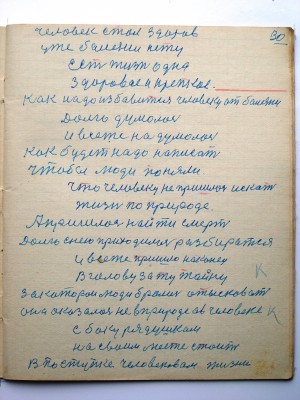 30
человек стал здоров
уже балезни нету
Есть жизн одна
здоровая и крепкое.
Как надо избавится человеку от балезни
Долго думолос
и всеже надумолос
Как будет надо написат
чтобы люди поняли
что человеку не пришлос искат
жизн по природе.
А пришлос найти смерт
Долго снею приходилос разбиратся
и всеже пришло наконец
В голову за ту тайну
За катором люди бролис отысковат
она оказалос не в природе а в человеке
с боку рядушкам
на своим месте стоит
В поступке человеком жизни